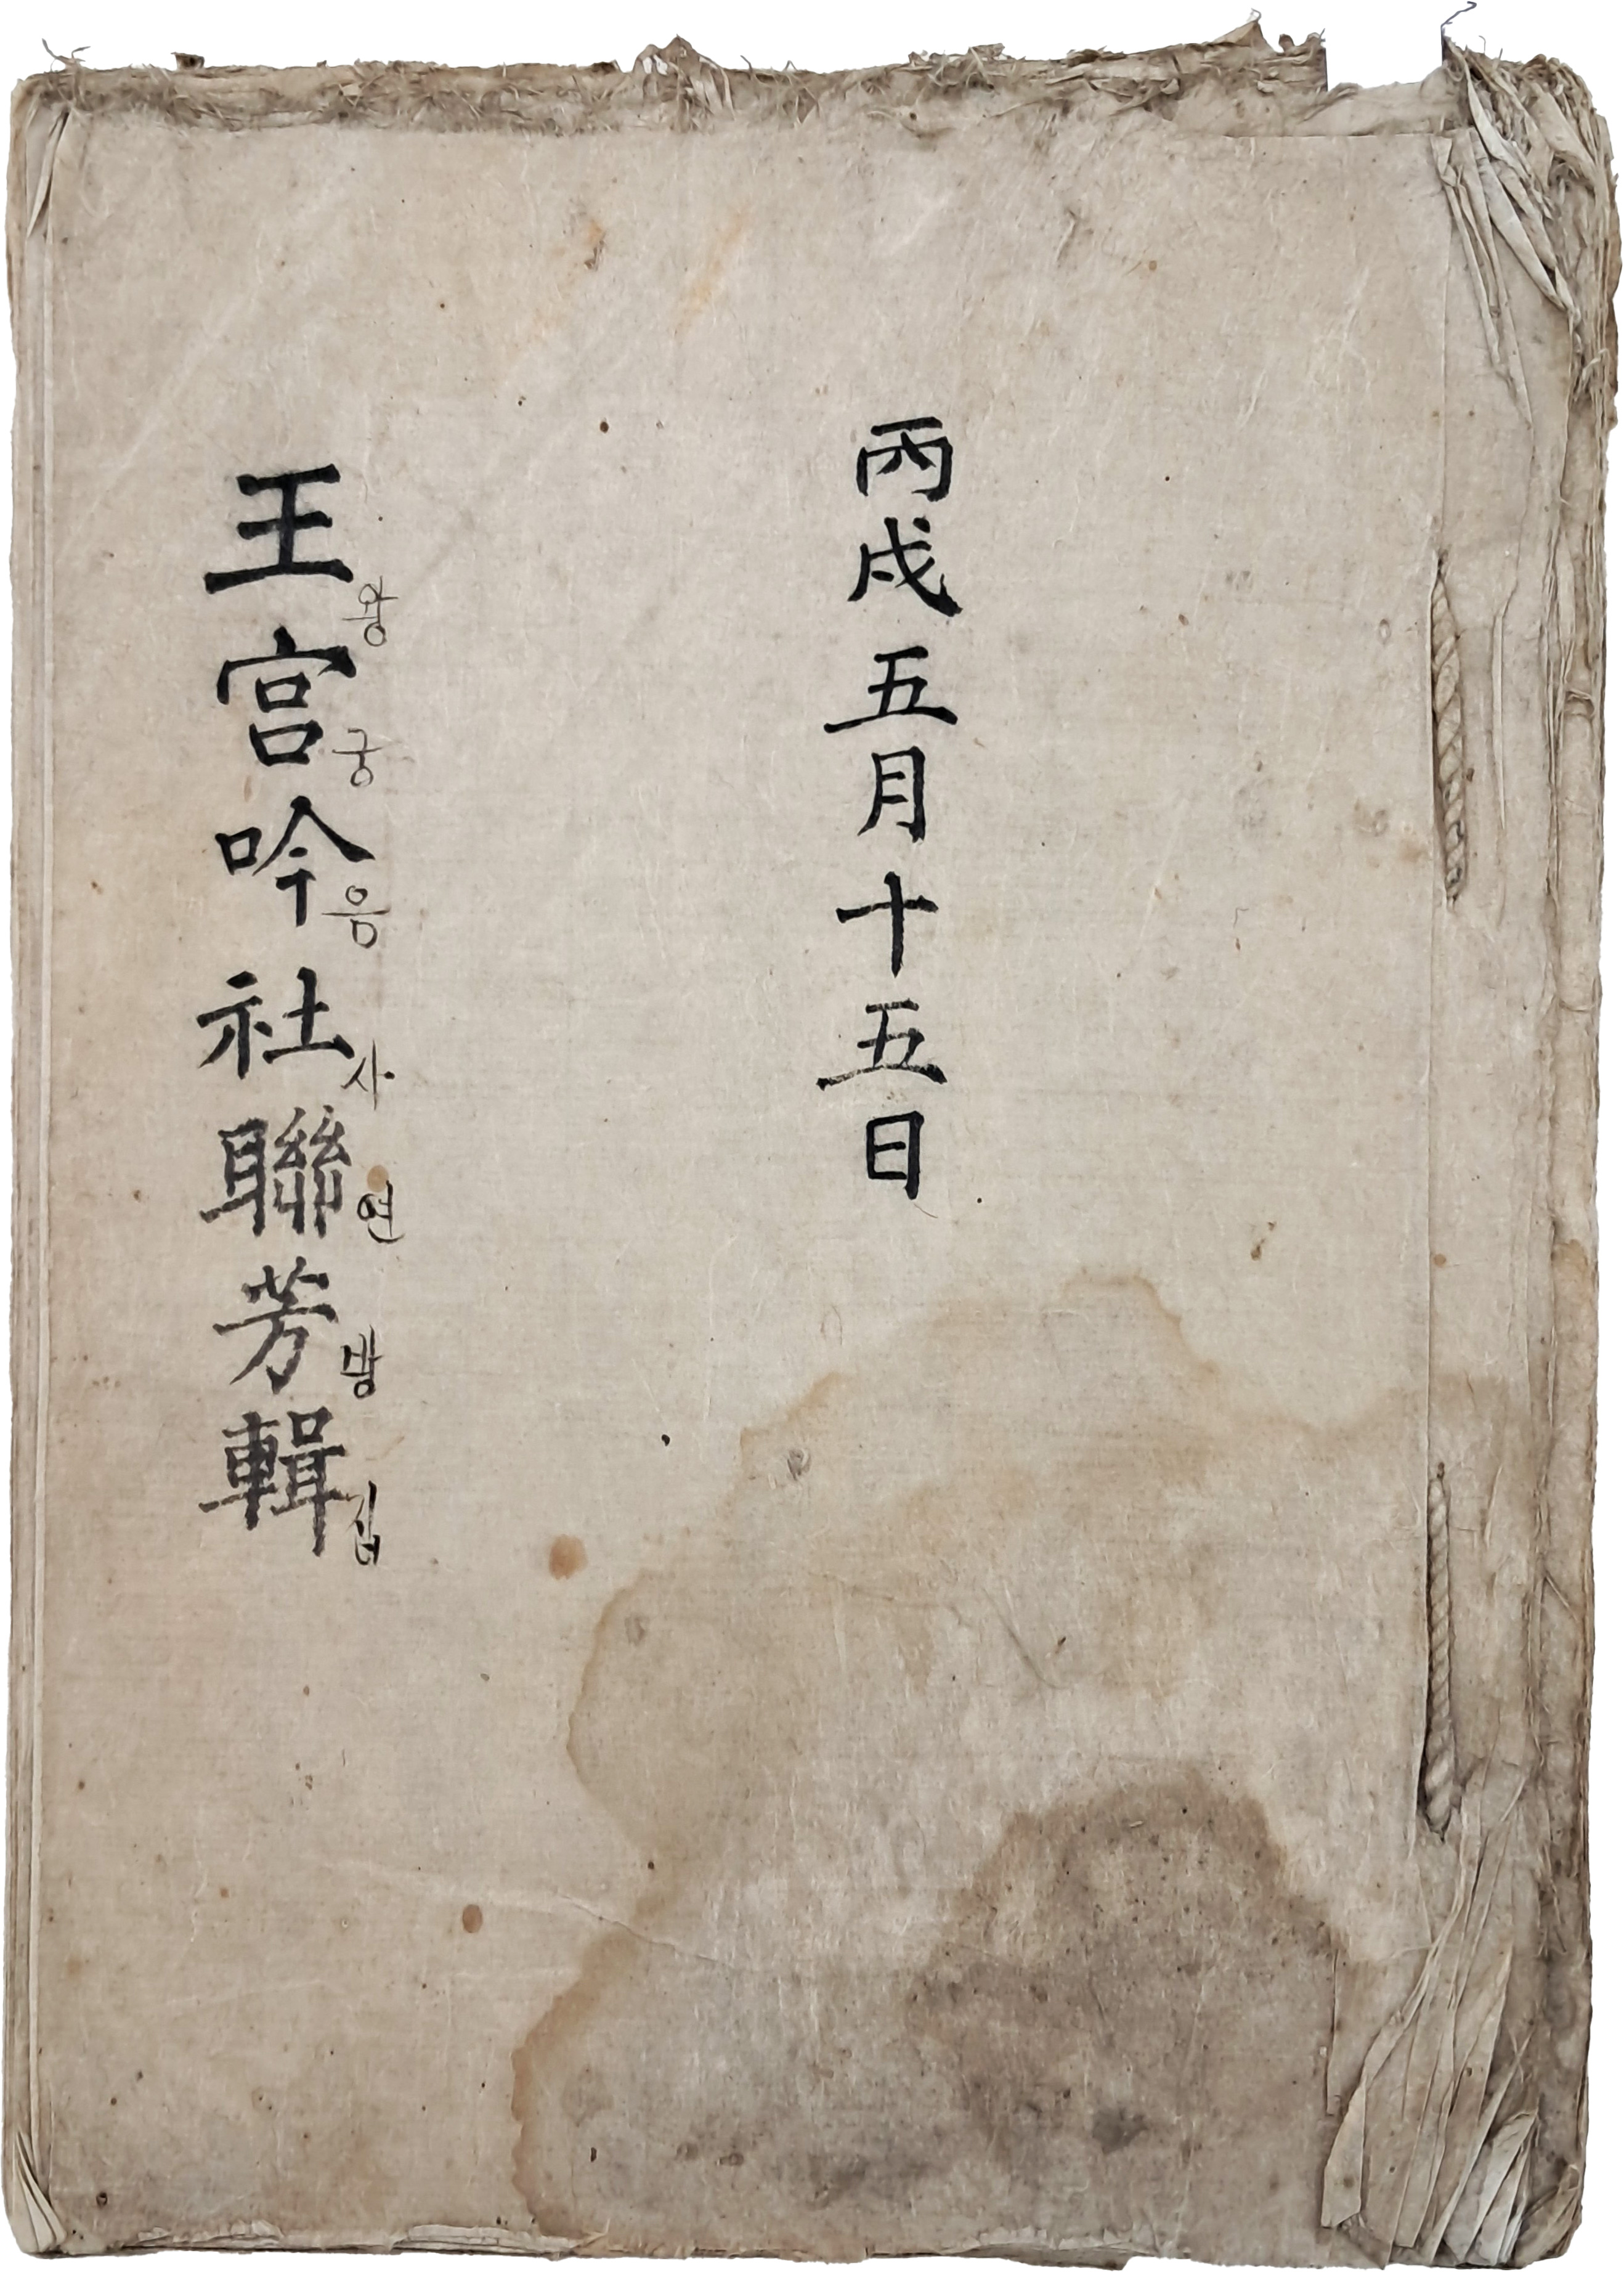 丙戌五月十五日
王宮吟社聯芳輯
왕궁음사연방집